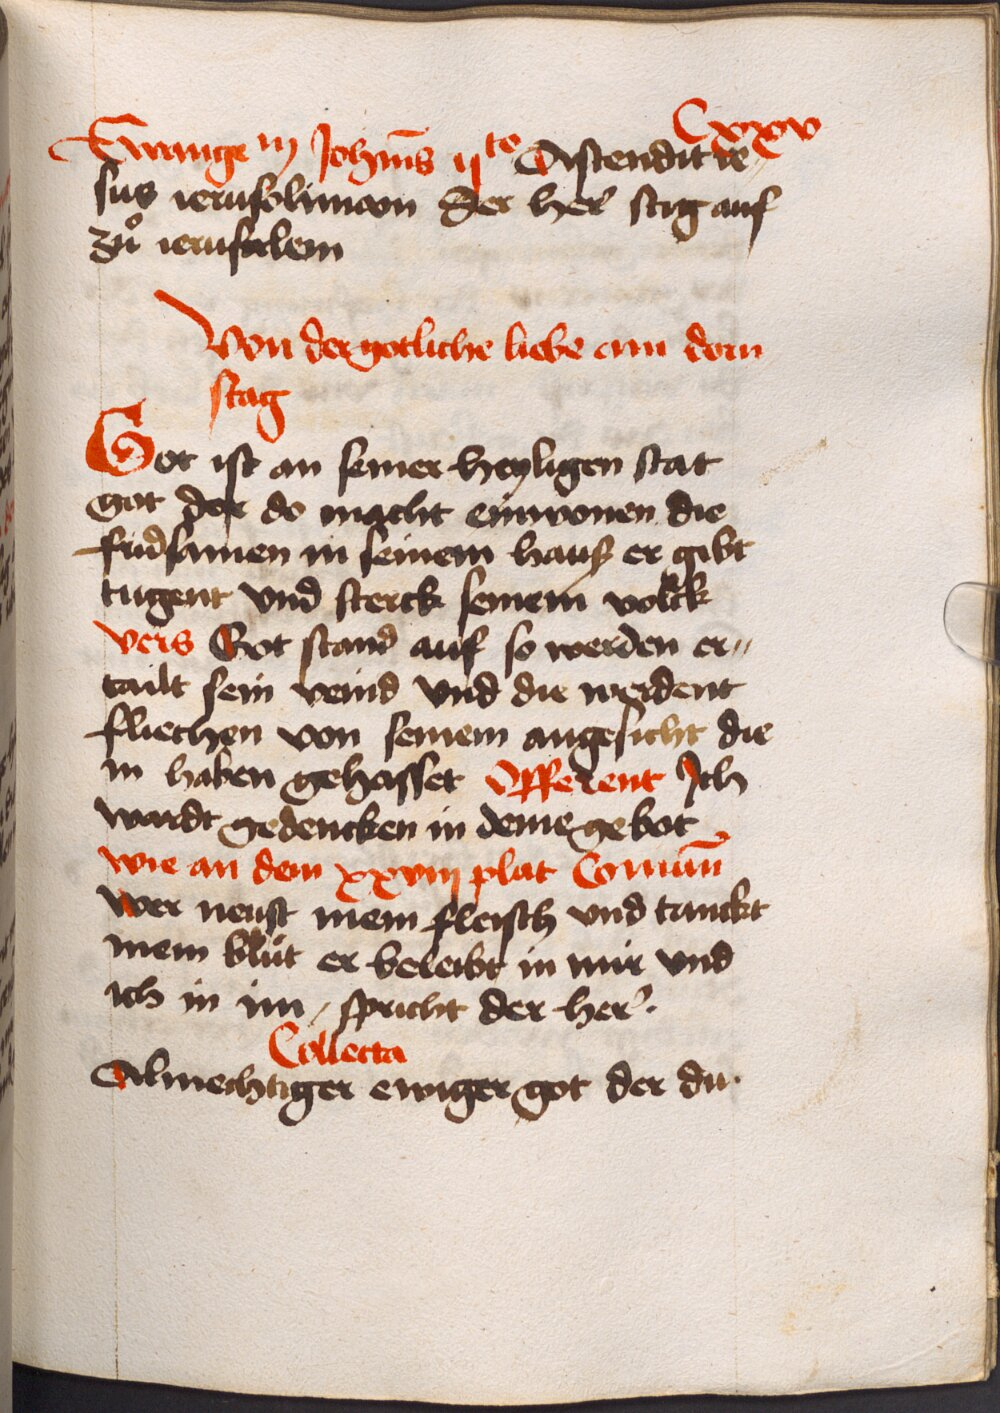 Cxxv
Ewange in Johīns ijto Astendit ie-
sus ierusolimam Der her̉ stig auf
zuͦ ierusalem
Von der gotliche liebe am dorn
stag
Got ist an seiner heyligen stat
Got der do macht einwonen die
fridsamen in seinem hauß er gibt
tugent vnd sterck seinem volck
vers Got stand auf so werden er„
tailt sein veind vnd die werdent
fliechen von seinem angesicht die
in haben gehasset Offerent Ich
wardt gedencken in deine gebot
wie an dem xxviij plat Comūn
wer neust mein fleisch vnd tranckt
mein bluͦt er beleibt in mir vnd
ich in im / spricht der her̉.
Collecta
Almechtiger ewiger got der du.